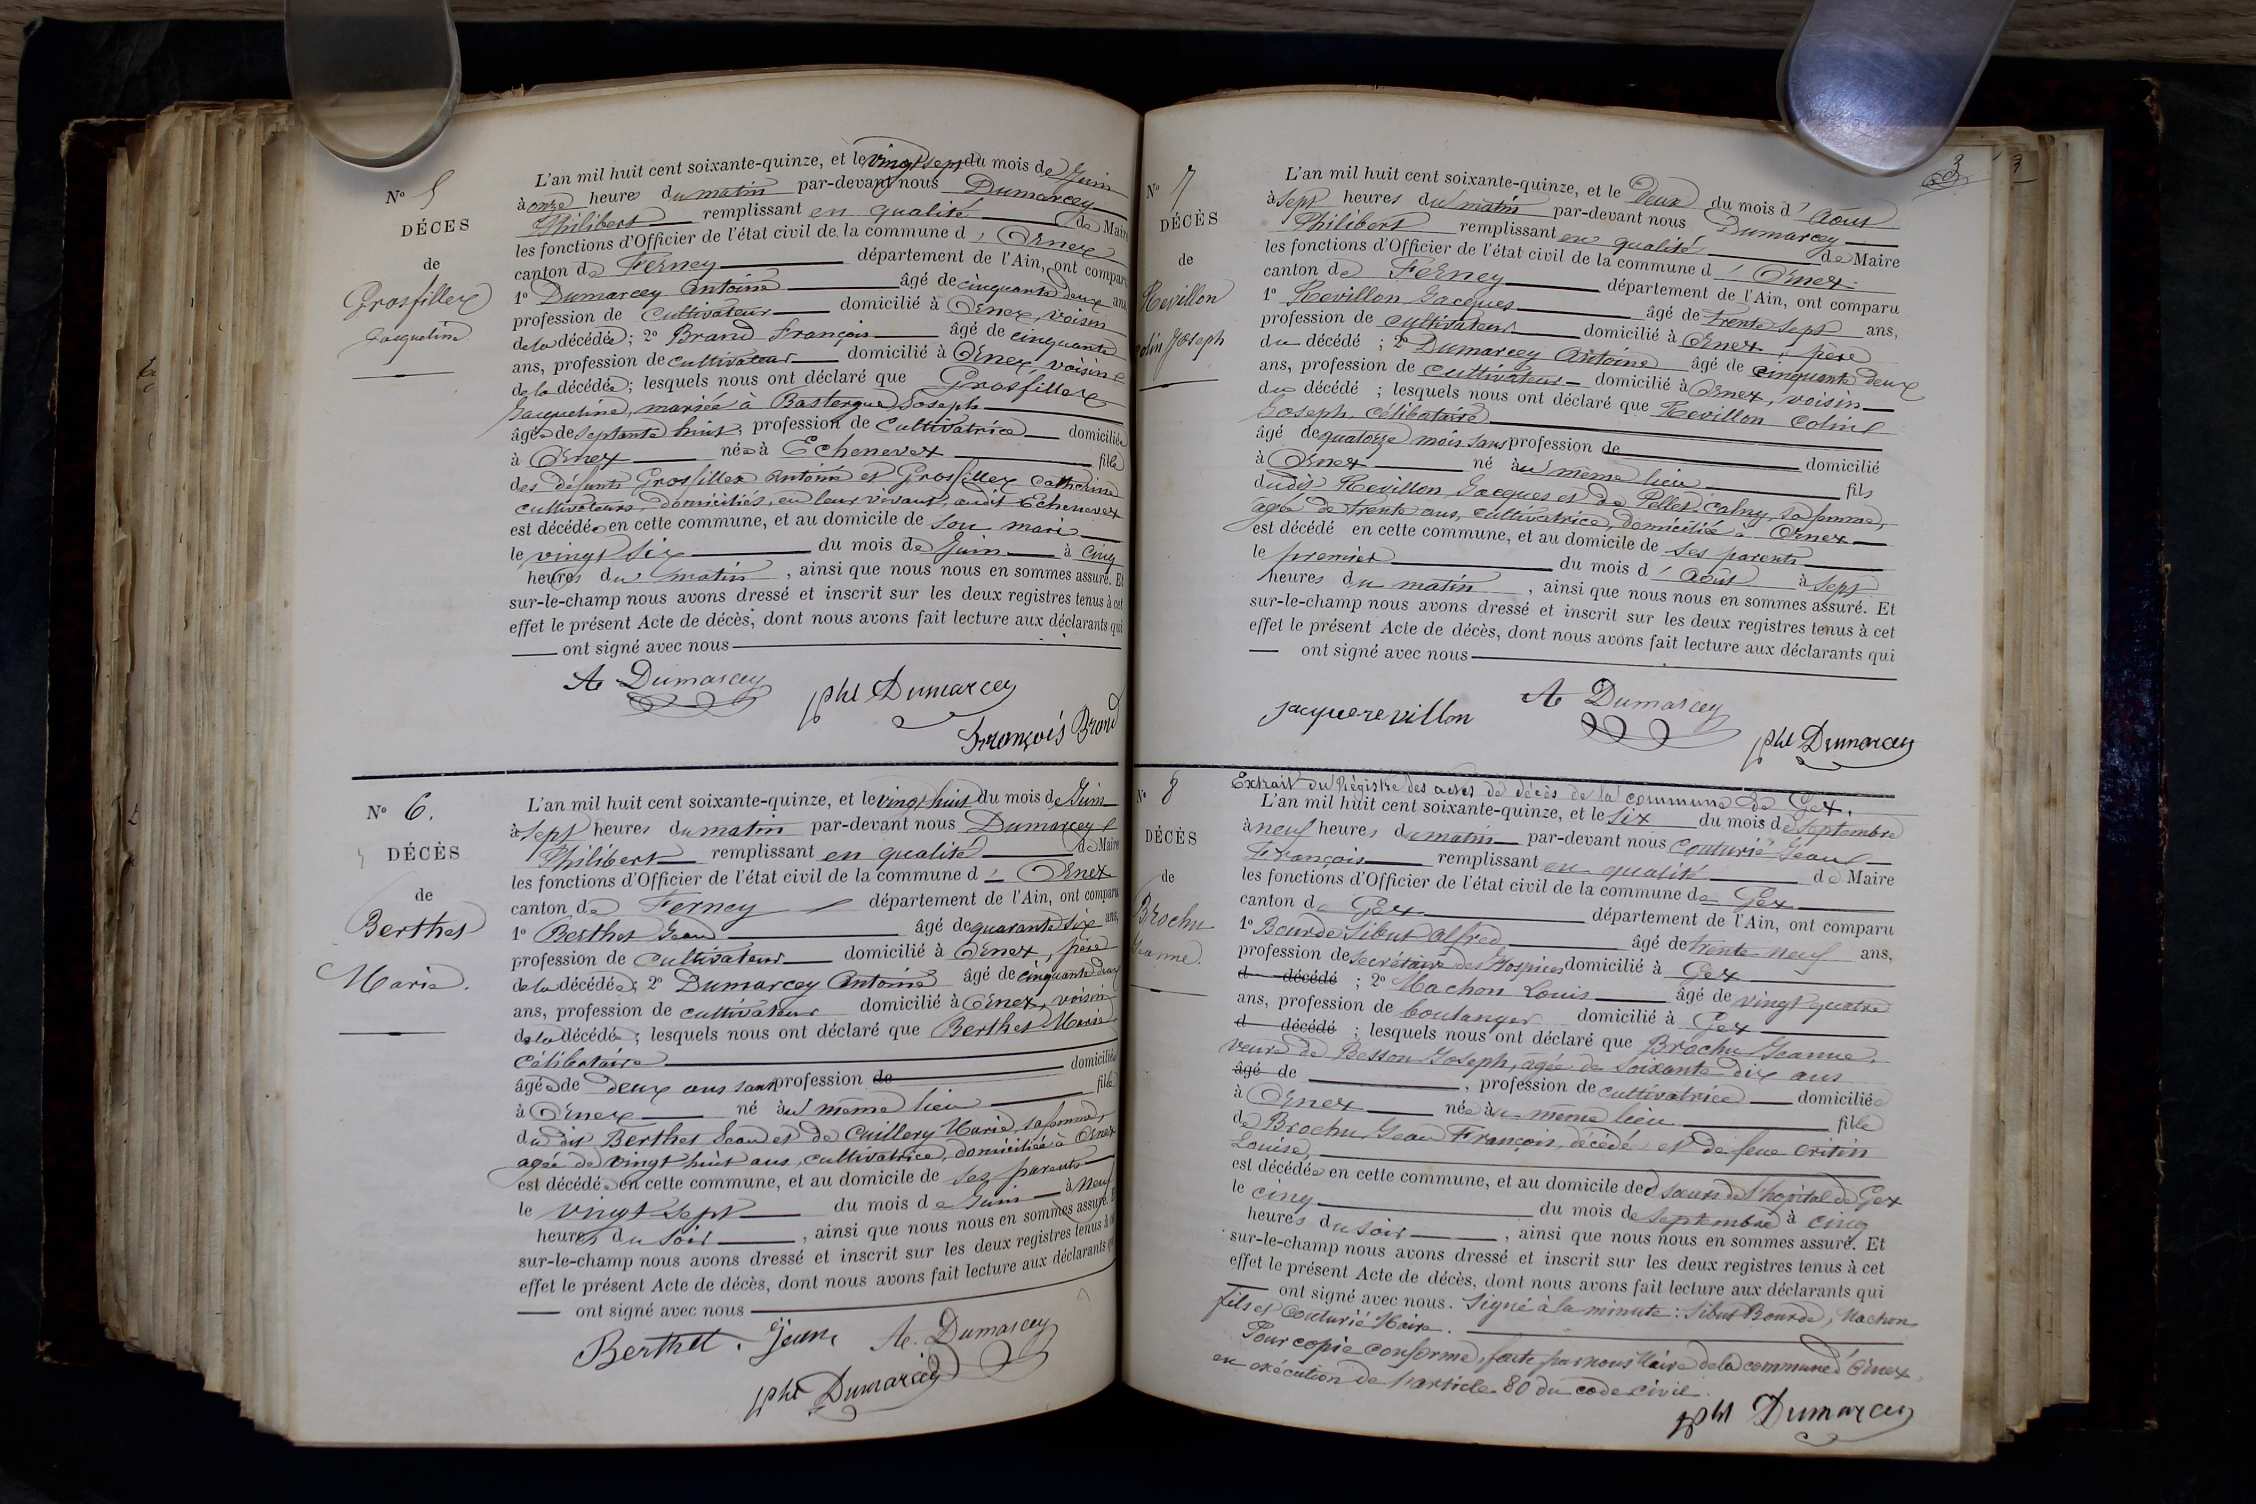 N° 5
DÉCES
de
Grosfillex
Jacqueline
L'an mil huit cent soixante-quinze, et le vingt sept du mois de Juin
à onze heures du matin par-devant nous Dumarcey
Philibert remplissant en qualité de Maire
les fonctions d'Officier de l'état civil de la commune d' Ornex
canton de Ferney département de l'Ain, ont comparu
1° Dumarcey Antoine âgé de cinquante deux ans,
profession de cultivateur domicilié à Ornex, voisin
de la décédée; 2° Brand François âgé de cinquante
ans, profession de cultivateur domicilié à Ornex, voisin
de la décédée; lesquels nous ont déclaré que Grosfillex
Jacqueline, mariée à Bastergue Joseph
âgée de septante huit, profession de Cultivatrice domiciliée
à Ornex née à Echenevex fille
des défunts Grosfillex Antoine et Grosfillex Catherine
cultivateurs, domiciliés, en leur vivant, audit Echenevex
est décédée en cette commune, et au domicile de son mari
le vingt six du mois de Juin à cinq
heures du matin, ainsi que nous nous en sommes assuré. Et
sur-le-champ nous avons dressé et inscrit sur les deux registres tenus à cet
effet le présent Acte de décès, dont nous avons fait lecture aux déclarants qui
ont signé avec nous
A Dumarcey
Phl Dumarcey
François Brand
N° 6.
DÉCÈS
de
Berthet
Marie.
L'an mil huit cent soixante-quinze, et le vingt huit du mois de Juin
à sept heures du matin par-devant nous Dumarcey
Philibert remplissant en qualité de Maire
les fonctions d'Officier de l'état civil de la commune d' Ornex
canton de Ferney département de l'Ain, ont comparu
1° Berthet Jean âgé de quarante six ans,
profession de cultivateur domicilié à Ornex, père
de la décédée; 2° Dumarcey Antoine âgé de cinquante deux
ans, profession de cultivateur domicilié à Ornex, voisin
de la décédée; lesquels nous ont déclaré que Berthet Marie
célibataire
âgée de deux ans sans profession de domiciliée
à Ornex né au même lieu fille
du dit Berthet Jean et de Cuillery Marie, sa femme,
agée de vingt huit ans, cultivatrice, domiciliée à Ornex
est décédée en cette commune, et au domicile de ses parents
le vingt sept du mois de Juin à neuf
heures du soir, ainsi que nous nous en sommes assuré. Et
sur-le-champ nous avons dressé et inscrit sur les deux registres tenus à cet
effet le présent Acte de décès, dont nous avons fait lecture aux déclarants qui
ont signé avec nous
Berthet. Jean
A. Dumarcey
Phl Dumarcey
3
N° 7
DÉCÈS
de
Revillon
Colin Joseph
L'an mil huit cent soixante-quinze, et le Deux du mois d' Août
à sept heures du matin par-devant nous Dumarcey
Philibert remplissant en qualité de Maire
les fonctions d'Officier de l'état civil de la commune d' Ornex
canton de Ferney département de l'Ain, ont comparu
1° Revillon Jacques âgé de trente sept ans,
profession de cultivateur domicilié à Ornex, père
du décédé ; 2° Dumarcey Antoine âgé de cinquante deux
ans, profession de cultivateur domicilié à Ornex, voisin
du décédé ; lesquels nous ont déclaré que Revillon Colin
Joseph, célibataire
âgé de quatorze mois sans profession de domicilié
à Ornex né au même lieu fils
dudit Revillon Jacques et de Pellet sa femme,
agée de trente ans, cultivatrice, domiciliée à Ornex
est décédé en cette commune, et au domicile de ses parents
le premier du mois d' Août à sept
heures du matin, ainsi que nous nous en sommes assuré. Et
sur-le-champ nous avons dressé et inscrit sur les deux registres tenus à cet
effet le présent Acte de décès, dont nous avons fait lecture aux déclarants qui
ont signé avec nous
jacque revillon
A Dumarcey
Phl Dumarcey
N° 8
DÉCÈS
de
Brochu
Jeanne.
Extrait du Régistre des actes de décès de la commune de Gex.
L'an mil huit cent soixante-quinze, et le six du mois de septembre
à neuf heures du matin par-devant nous Couturié Jean
François remplissant en qualité de Maire
les fonctions d'Officier de l'état civil de la commune de Gex
canton de Gex département de l'Ain, ont comparu
1° Bourde Sibut Alfred âgé de trente neuf ans,
profession de secrétaire des Hospices domicilié à Gex
d décédé ; 2° Machon Louis âgé de vingt quatre
ans, profession de boulanger domicilié à Gex
d décédé ; lesquels nous ont déclaré que Brochu Jeanne,
veuve de Besson Joseph, agée de soixante dix ans
âgé de , profession de cultivatrice domiciliée
à Ornex née au même lieu fille
de Brochu Jean François, décédé et de feue Critin
Louise,
est décédée en cette commune, et au domicile des sœurs de l'hopital de Gex
le cinq du mois de septembre à cinq
heures du soir, ainsi que nous nous en sommes assuré. Et
sur-le-champ nous avons dressé et inscrit sur les deux registres tenus à cet
effet le présent Acte de décès, dont nous avons fait lecture aux déclarants qui
ont signé avec nous. Signé à la minute : Sibut Bourde, Machon
fils et Couturié Maire.
Pour copie conforme, faite par nous Maire de la commune d'Ornex,
en exécution de l'article 80 du code civil.
Phl Dumarcey